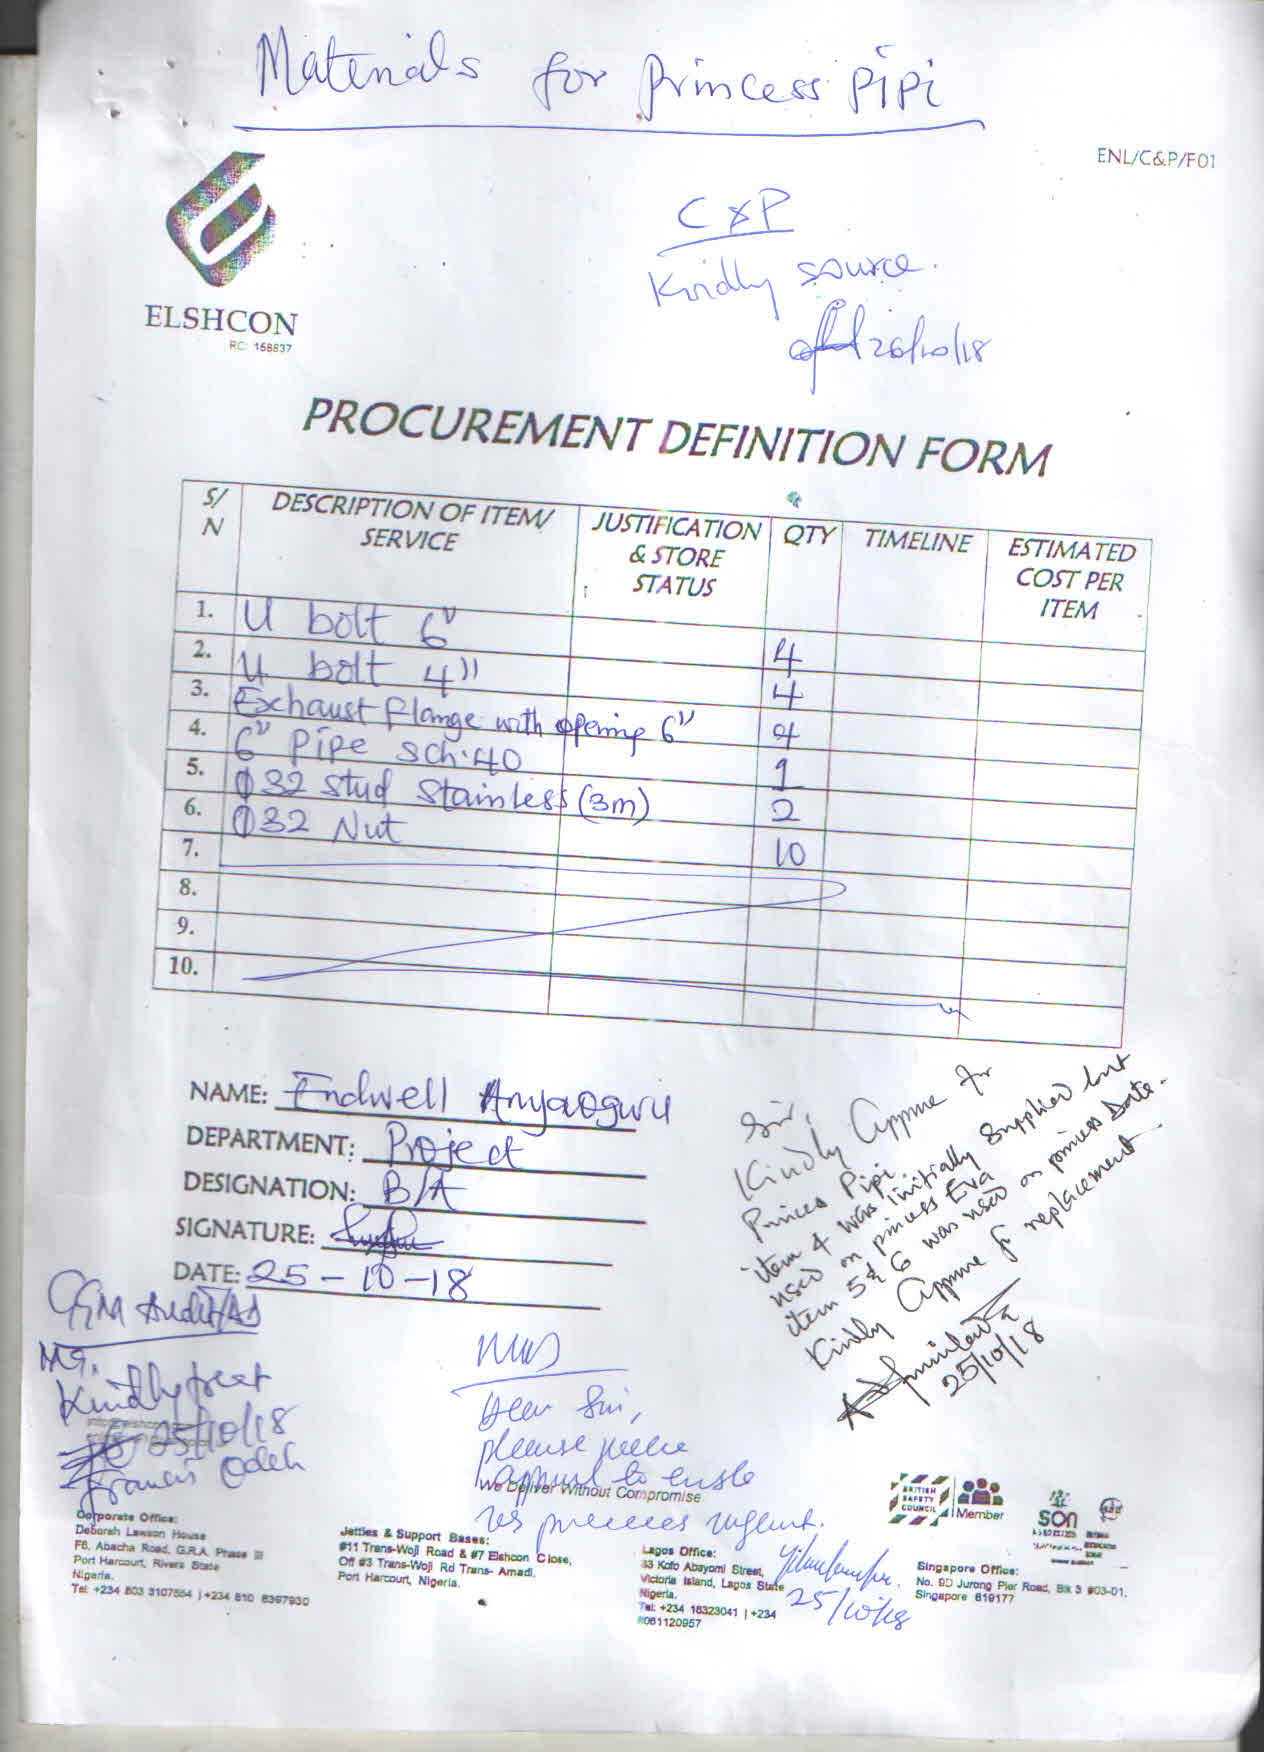 Materials for princess pipi
ENL/C&P/F01
C&P
Kindly source.
26/10/18
ELSHCON
RC: 158837
PROCUREMENT DEFINITION FORM
S/N DESCRIPTION OF ITEM/ SERVICE JUSTIFICATION & STORE STATUS QTY TIMELINE ESTIMATED COST PER ITEM
1. U bolt 6" 4
2. U bolt 4" 4
3. Exhaust flange with opening 6" 4
4. 6" Pipe sch.40 1
5. Ø32 stud stainless (3m) 2
6. Ø32 Nut 10
7.
8.
9.
10.
NAME: Endwell Anyaoguru
DEPARTMENT: Project
DESIGNATION: B/A
SIGNATURE:
DATE: 25-10-18
Sir,
Kindly approve for
Princes Pipi
item 4 was initially supplied but
used on princes Eva
item 5 & 6 was used on princes Date.
Kindly approve for replacement
25/10/18
GM Audit/
Kindly treat
25/10/18
Francis Odeh
Dear Sir,
please
approval to enable
us process urgent.
25/10/18
We Deliver Without Compromise
Corporate Office:
Deborah Lawson House
F6, Abacha Road, G.R.A. Phase III
Port Harcourt, Rivers State
Nigeria.
Tel: +234 803 3107554 | +234 810 8397930
Jetties & Support Bases:
#11 Trans-Woji Road & #7 Elshcon Close,
Off #3 Trans-Woji Rd Trans- Amadi,
Port Harcourt, Nigeria.
Lagos Office:
33 Kofo Abayomi Street,
Victoria Island, Lagos State
Nigeria.
Tel: +234 18323041 | +234
8061120957
Singapore Office:
No. 9D Jurong Pier Road, Blk 3 #03-01,
Singapore 619177
BRITISH
SAFETY
COUNCIL
Member
SON